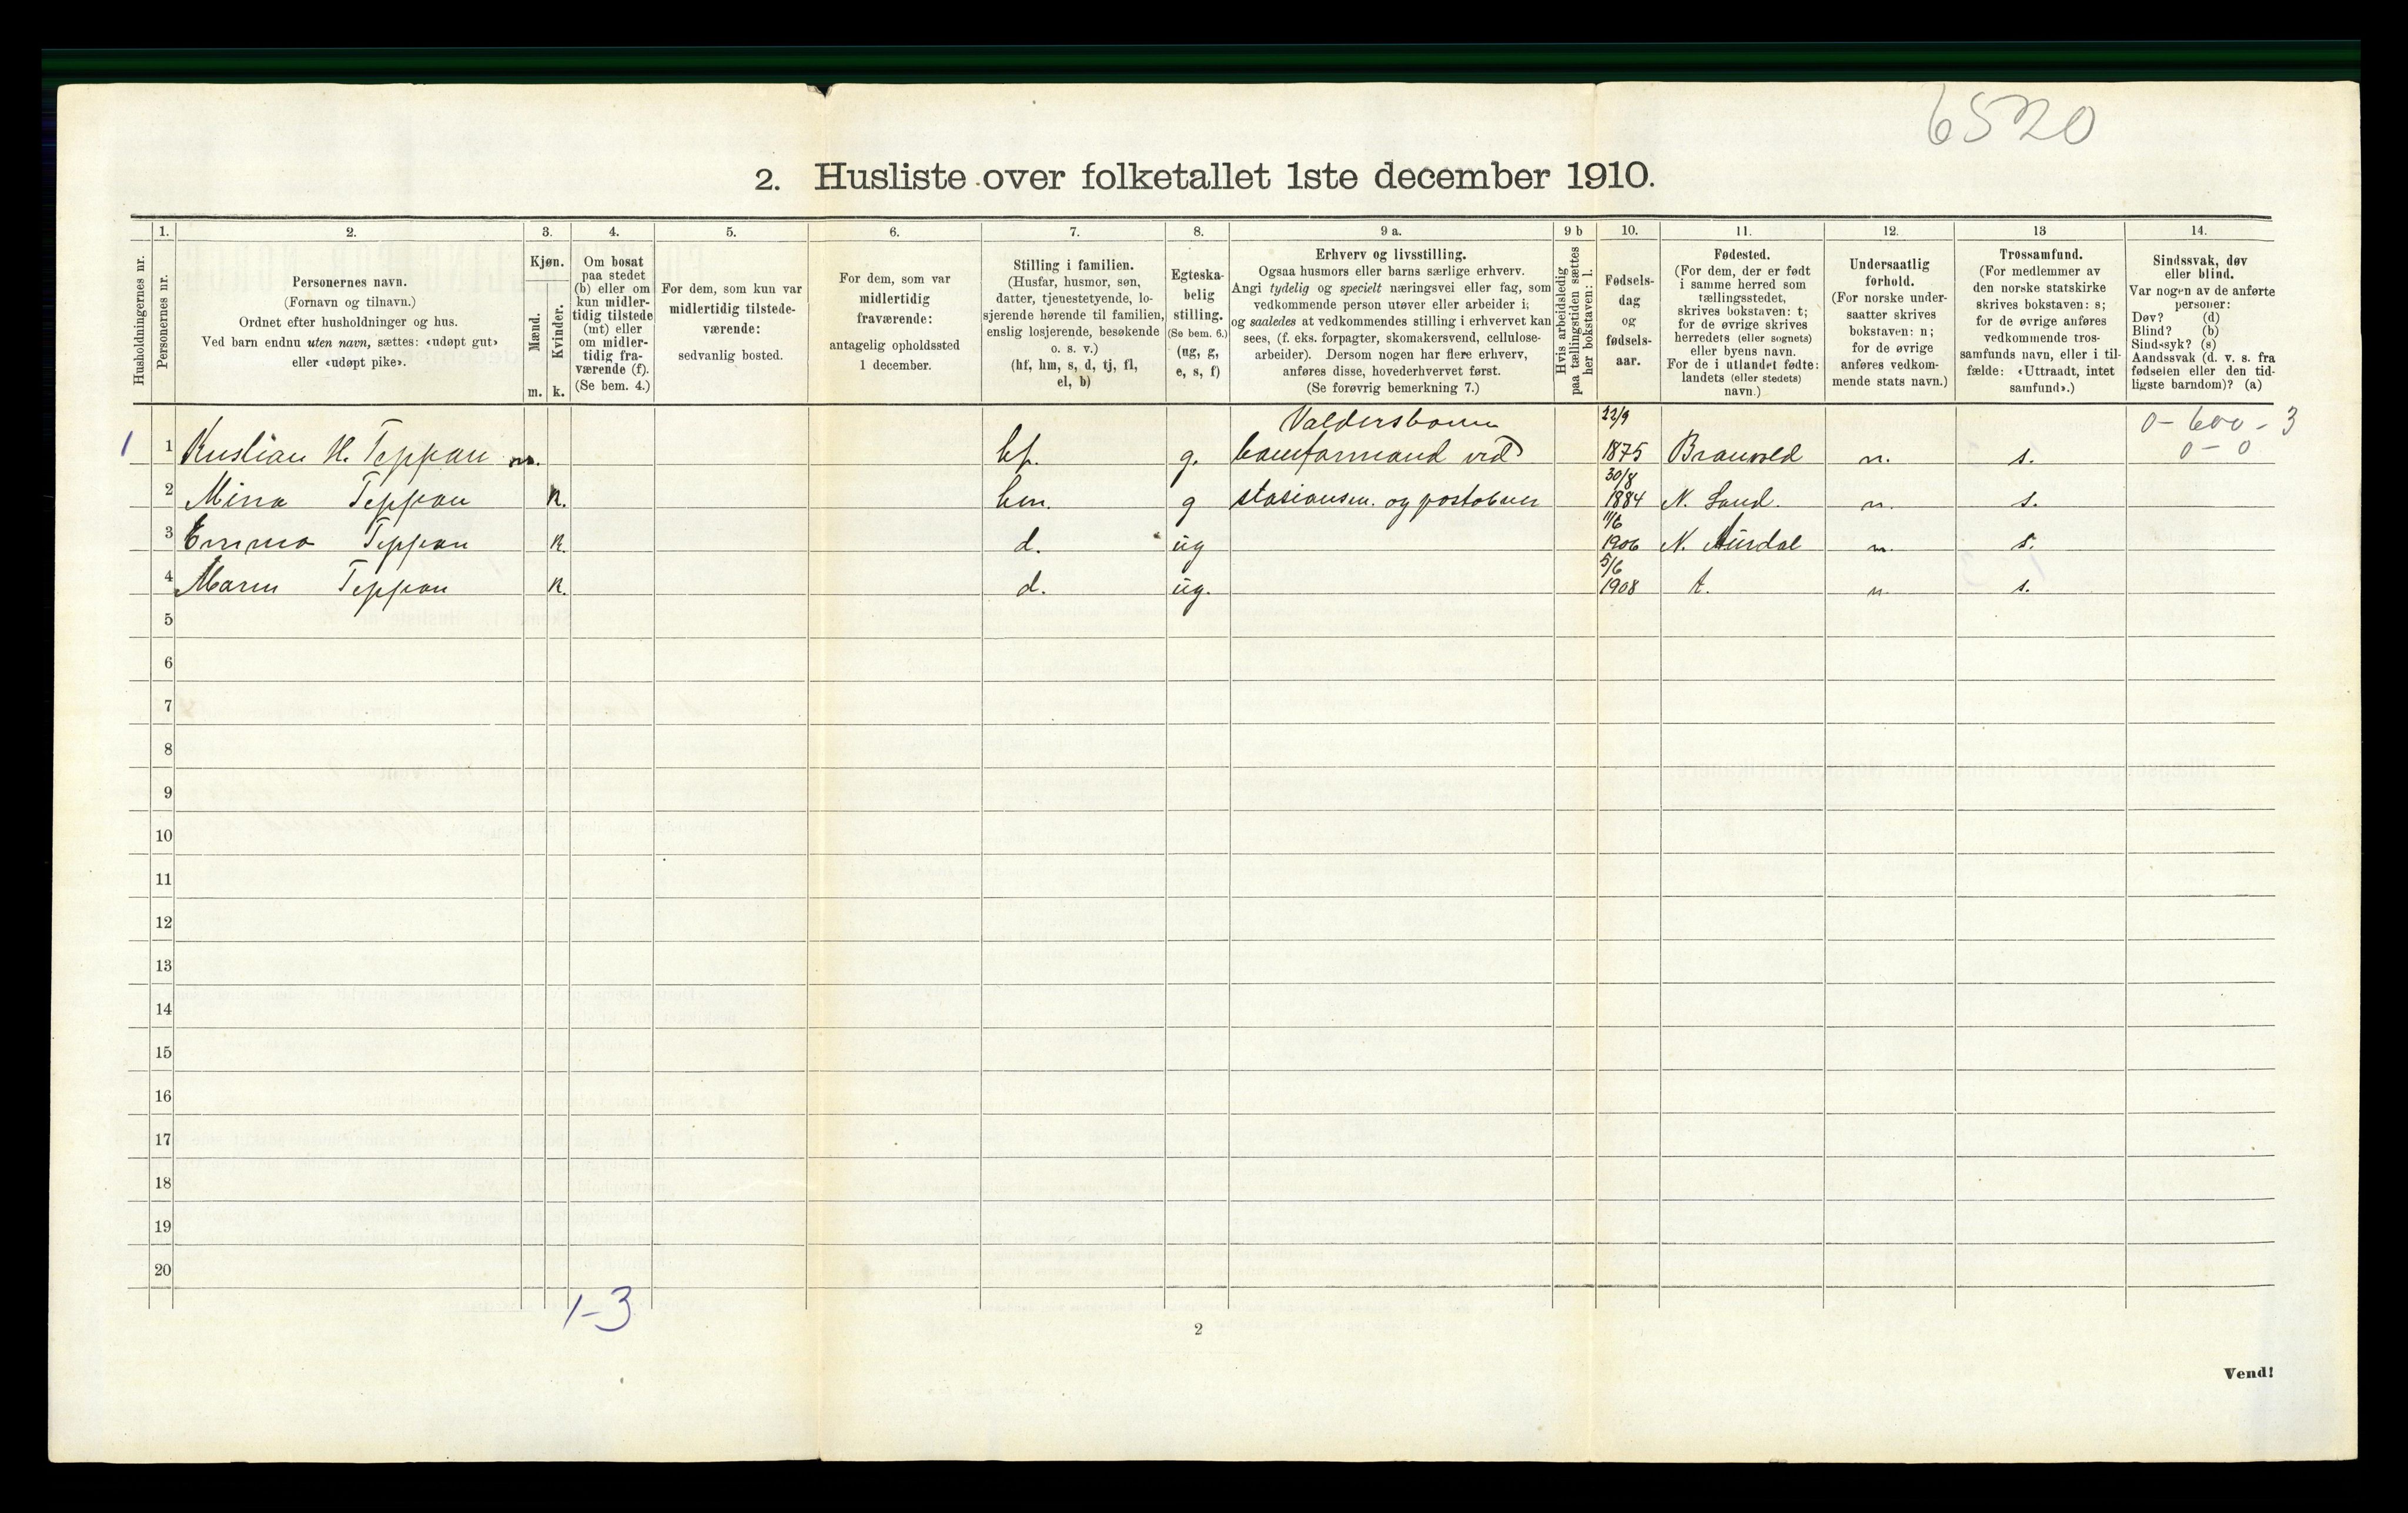 6520
2. Husliste over folketallet 1ste december 1910.
Husholdningernes nr.
1.
Personernes nr.
2.
Personernes navn.
(Fornavn og tilnavn.)
Ordnet efter husholdninger og hus.
Ved barn endnu uten navn, sættes: «udøpt gut»
eller «udøpt pike».
3.
Kjøn.
Mænd.
m.
Kvinder.
k.
4.
Om bosat
paa stedet
(b) eller om
kun midler-
tidig tilstede
(mt) eller
om midler-
tidig fra-
værende (f).
(Se bem. 4.)
5.
For dem, som kun var
midlertidig tilstede-
værende:
sedvanlig bosted.
6.
For dem, som var
midlertidig
fraværende:
antagelig opholdssted
1 december.
7.
Stilling i familien.
(Husfar, husmor, søn,
datter, tjenestetyende, lo-
sjerende hørende til familien,
enslig losjerende, besøkende
o. s. v.)
(hf, hm, s, d, tj, fl,
el, b)
8.
Egteska-
belig
stilling.
(Se bem. 6.)
(ug, g,
e, s, f)
9 a.
Erhverv og livsstilling.
Ogsaa husmors eller barns særlige erhverv.
Angi tydelig og specielt næringsvei eller fag, som
vedkommende person utøver eller arbeider i;
og saaledes at vedkommendes stilling i erhvervet kan
sees, (f. eks. forpagter, skomakersvend, cellulose-
arbeider). Dersom nogen har flere erhverv,
anføres disse, hovederhvervet først.
(Se forøvrig bemerkning 7.)
9 b
Hvis arbeidsledig
paa tællingstiden sættes
her bokstaven: l.
10.
Fødsels-
dag
og
fødsels-
aar.
11.
Fødested.
(For dem, der er født
i samme herred som
tællingsstedet,
skrives bokstaven: t;
for de øvrige skrives
herredets (eller sognets)
eller byens navn.
For de i utlandet fødte:
landets (eller stedets)
navn.)
12.
Undersaatlig
forhold.
(For norske under-
saatter skrives
bokstaven: n;
for de øvrige
anføres vedkom-
mende stats navn.)
13
Trossamfund.
(For medlemmer av
den norske statskirke
skrives bokstaven: s;
for de øvrige anføres
vedkommende tros-
samfunds navn, eller i til-
fælde: «Uttraadt, intet
samfund».)
14.
Sindssvak, døv
eller blind.
Var nogen av de anførte
personer:
Døv? (d)
Blind? (b)
Sindssyk? (s)
Aandssvak (d. v. s. fra
fødselen eller den tid-
ligste barndom)? (a)
Valdersbanen 22/9 0 - 600 - 3
1 1 Kristian H. Teppan m. hf. g. banformand ved 1875 Brauvold n. s. 0 - 0
30/8
2 Mina Teppan k. hm. g stasionsm. og postobner 1884 N. Land. n. s.
11/6
3 Emma Teppan k. d. ug 1906 N. Aurdal n. s.
5/6
4 Maren Teppan k. d. ug. 1908 t. n. s.
5
6
7
8
9
10
11
12
13
14
15
16
17
18
19
20
1-3
2
Vend!